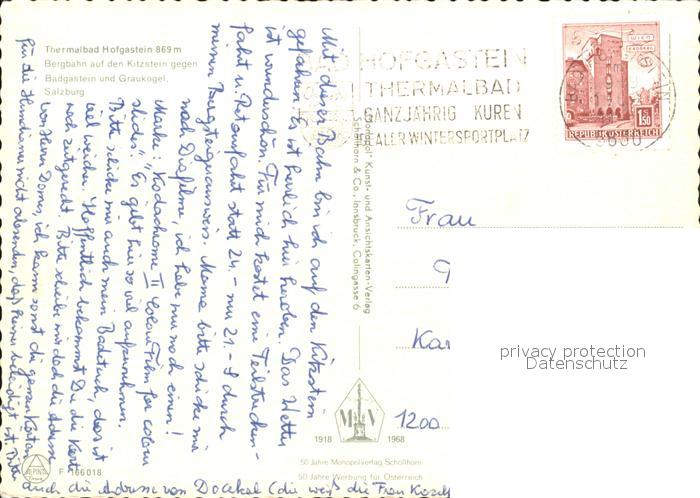 Thermalbad Hofgastein 869 m
Bergbahn auf den Kitzstein gegen
Badgastein und Graukogel,
Salzburg
BAD HOFGASTEIN
THERMALBAD
GANZJÄHRIG KUREN
IDEALER WINTERSPORTPLATZ
WIEN
ERDBERG
1.50
REPUBLIK ÖSTERREICH
5630
Mit dieser Bahn bin ich auf den Kitzstein
gefahren. Es ist herrlich hier heroben. Das Wetter
ist wunderschön. Für mich kostet eine Teilstrecken-
fahrt u. Retourfahrt statt 24.- nur 21.- S durch
meinen Bergsteigerausweis. Mama bitte schicke mir
noch Diafilme, ich habe nur noch einen!
Marke: "Kodachrome II Colour Film for colour
slides". Es gibt hier so viel aufzunehmen.
Bitte schicke mir auch mein Badetuch, das ist
viel weicher. Hoffentlich bekommst Du die Karte
noch zeitgerecht. Bitte schreibe mir doch die Adresse
von Herrn Domes, ich kann sonst die ganzen Karten
für die nicht absenden, daß keiner beleidigt ist. Bitte
auch die Adresse von Docekal (die weiß die Frau
"Monopol" Kunst- und Ansichtskarten-Verlag
Schöllhorn & Co., Innsbruck, Colingasse 6
Frau
Kar
1200
M V
1918
1968
50 Jahre Monopolverlag Schöllhorn
50 Jahre Werbung für Österreich
F 166018
privacy protection
Datenschutz